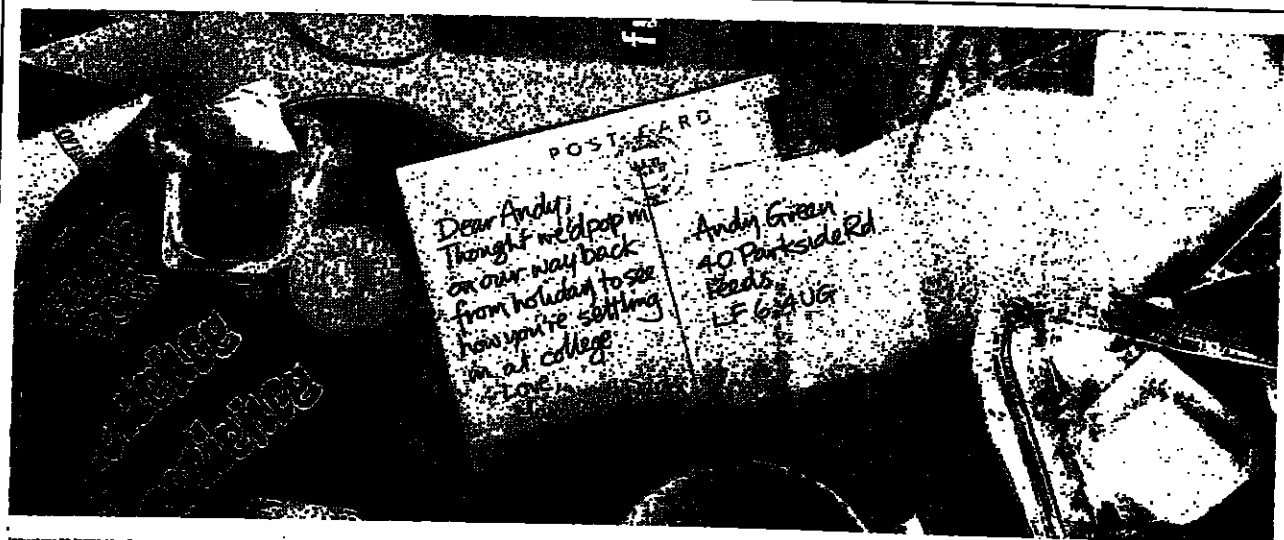 POST CARD
Dear Andy,
Thought we'd pop in
on our way back
from holiday to see
how you're settling
in at college
Love,
Andy Green
40 Parkside Rd
Leeds
LF6 4UG